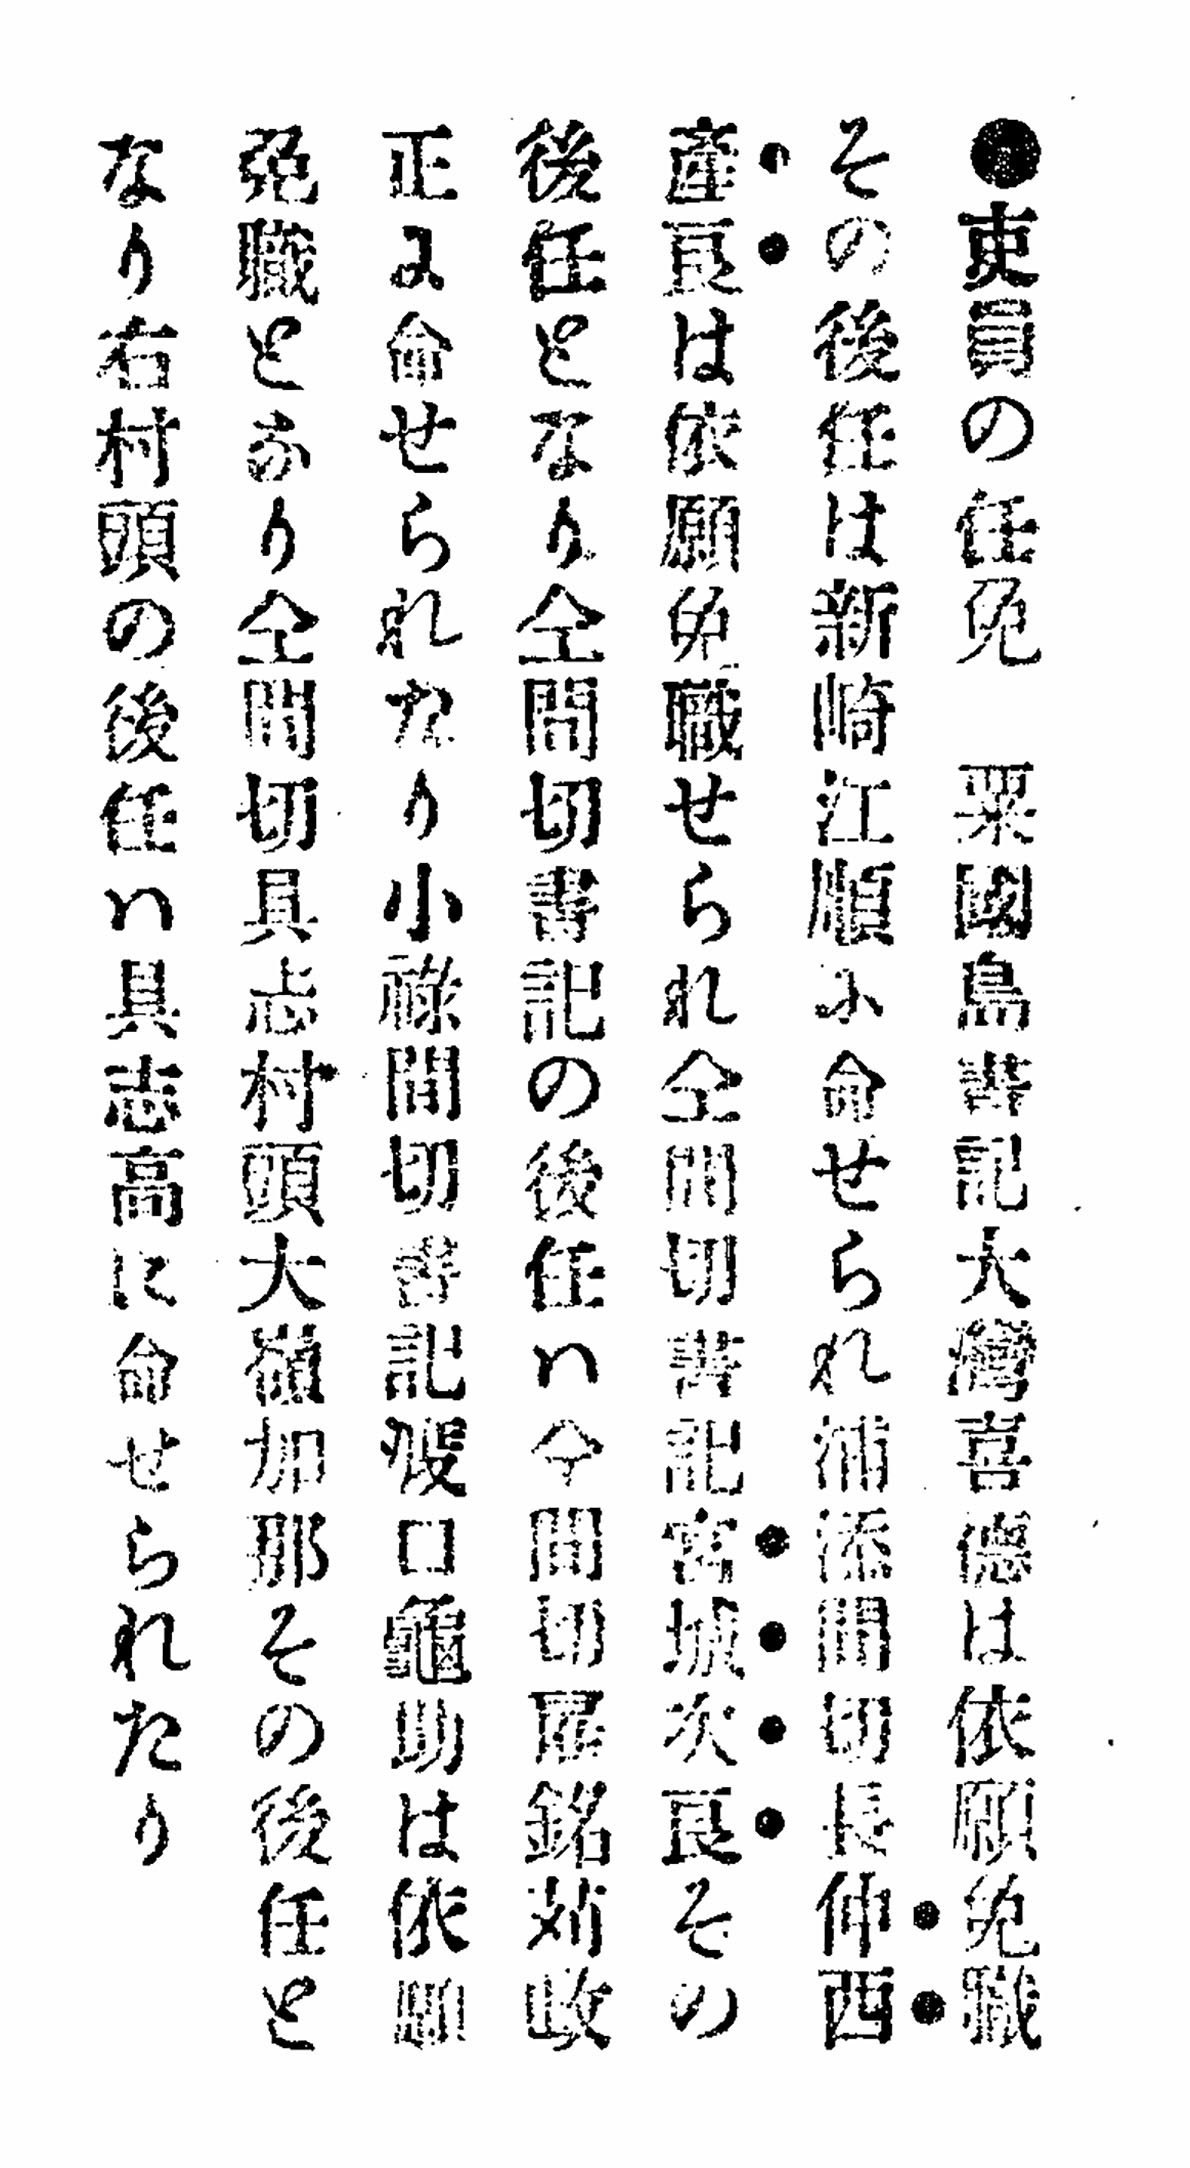 ●吏員の任免　粟國島書記大灣喜德は依願免職
その後任は新崎江順に命せられ浦添間切長仲西
產良は依願免職せられ仝間切書記宮城次良その
後任となり仝間切書記の後任ハ今間切雇銘苅政
正に命せられたり小祿間切書記役口龜助は依願
免職となり仝間切具志村頭大嶺加那その後任と
なり右村頭の後任ハ具志高に命せられたり